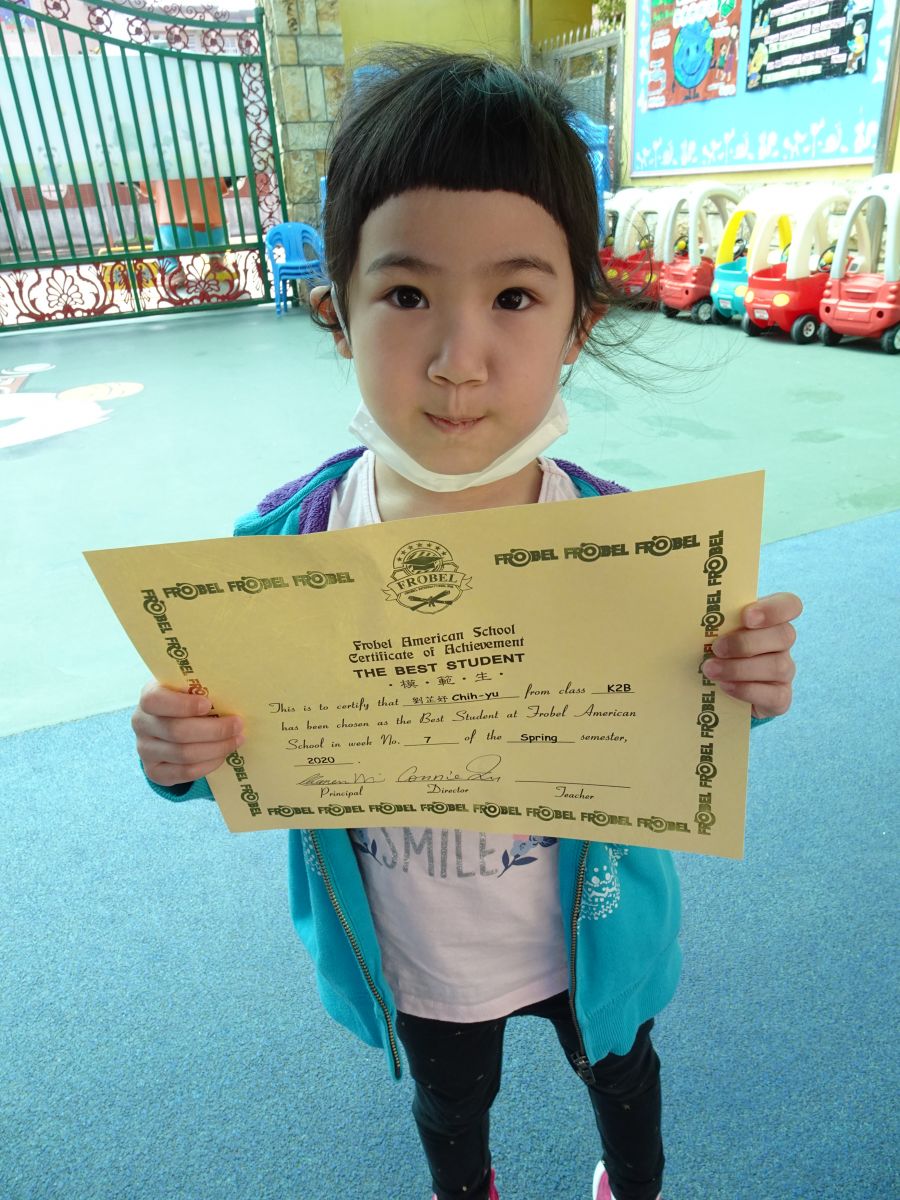 FROBEL FROBEL FROBEL
FROBEL FROBEL FROBEL
FROBEL
Frobel American School
Certificate of Achievement
THE BEST STUDENT
・模・範・生・
This is to certify that 劉芷妤 Chih-yu from class K2B
has been chosen as the Best Student at Frobel American
School in week No. 7 of the Spring semester,
2020 .
Principal Director Teacher
FROBEL FROBEL FROBEL FROBEL FROBEL FROBEL
SMILE